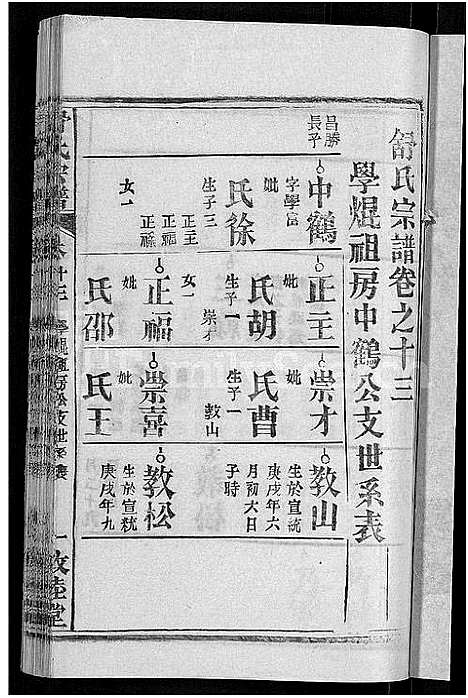 舒氏宗譜卷之十三
學焜祖房中鶴公支世系表
昌勝
長子
中鶴
字學富
妣
徐氏
生子三
正主
正福
正祿
女一
正主
妣
胡氏
生子一
崇才
女一
正福
妣
邵氏
崇才
妣
曹氏
生子一
教山
崇喜
妣
王氏
教山
生於宣統
庚戌年六
月初六日
子時
教松
生於宣統
庚戌年九
舒氏宗譜
卷十三
一